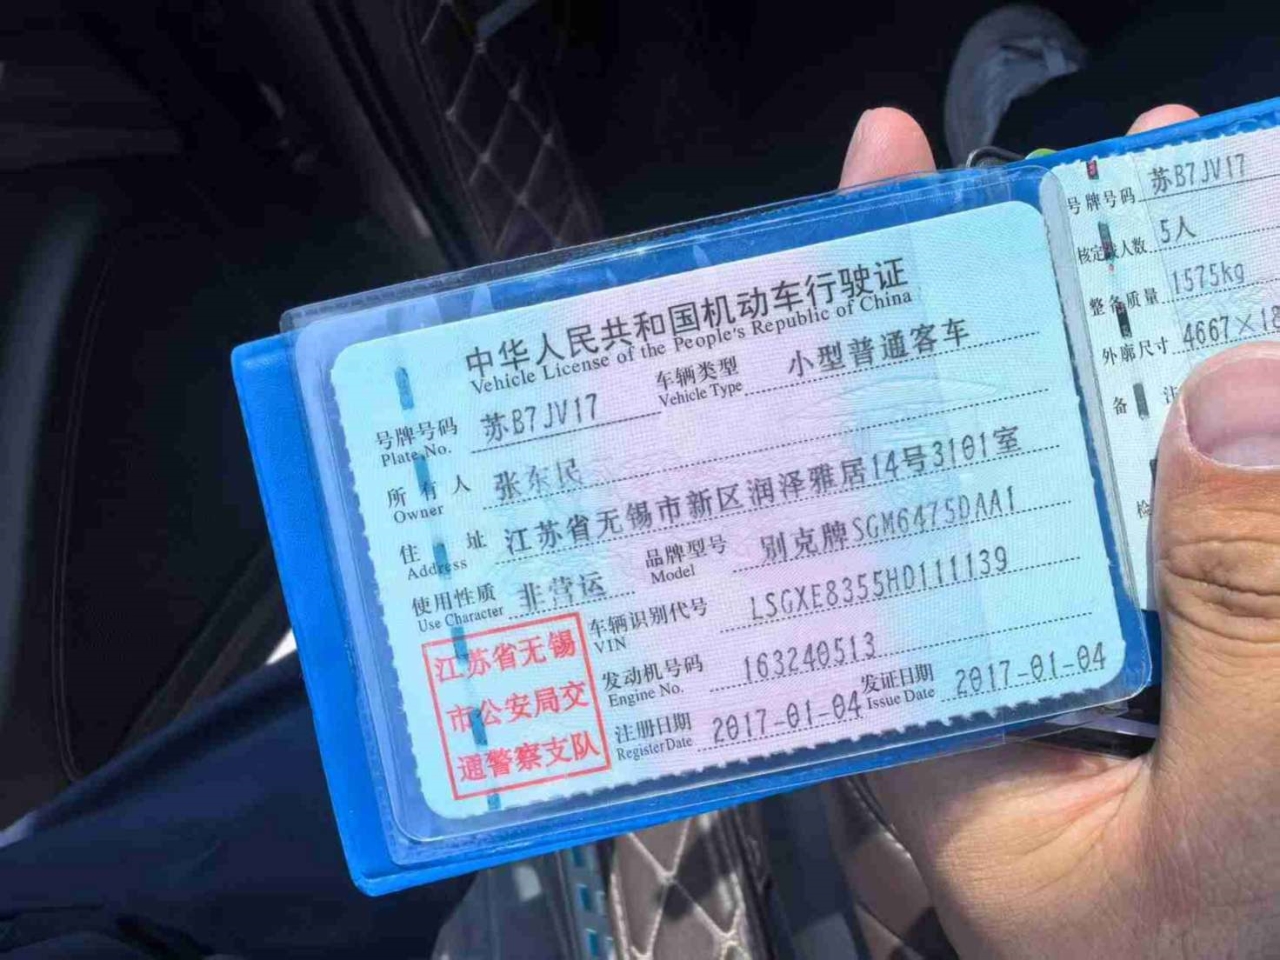 中华人民共和国机动车行驶证
Vehicle License of the People's Republic of China
号牌号码 苏B7JV17 车辆类型 小型普通客车
Plate No. Vehicle Type
所有人 张东民
Owner
住址 江苏省无锡市新区润泽雅居14号3101室
Address
使用性质 非营运 品牌型号 别克牌SGM6475DAA1
Use Character Model
车辆识别代号 LSGXE8355HD111139
VIN
发动机号码 163240513
Engine No.
注册日期 2017-01-04 发证日期 2017-01-04
Register Date Issue Date
江苏省无锡
市公安局交
通警察支队
号牌号码 苏B7JV17
核定载人数 5人
整备质量 1575kg
外廓尺寸 4667×18
备